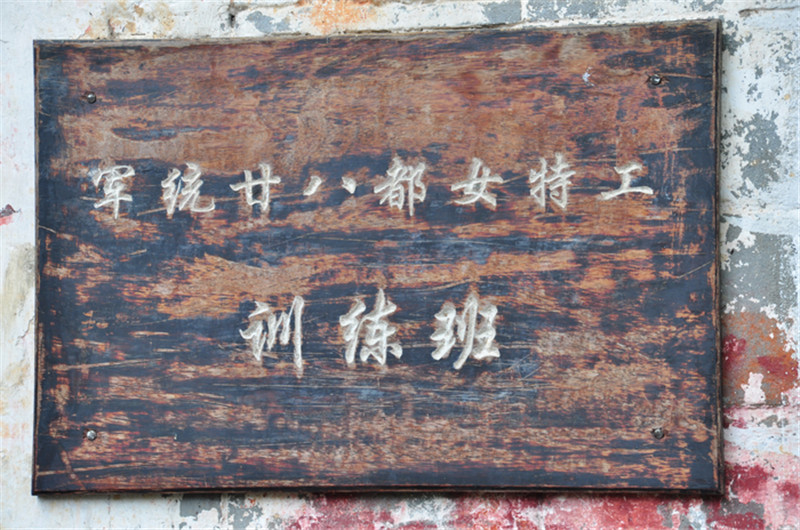 军统廿八都女特工
训练班